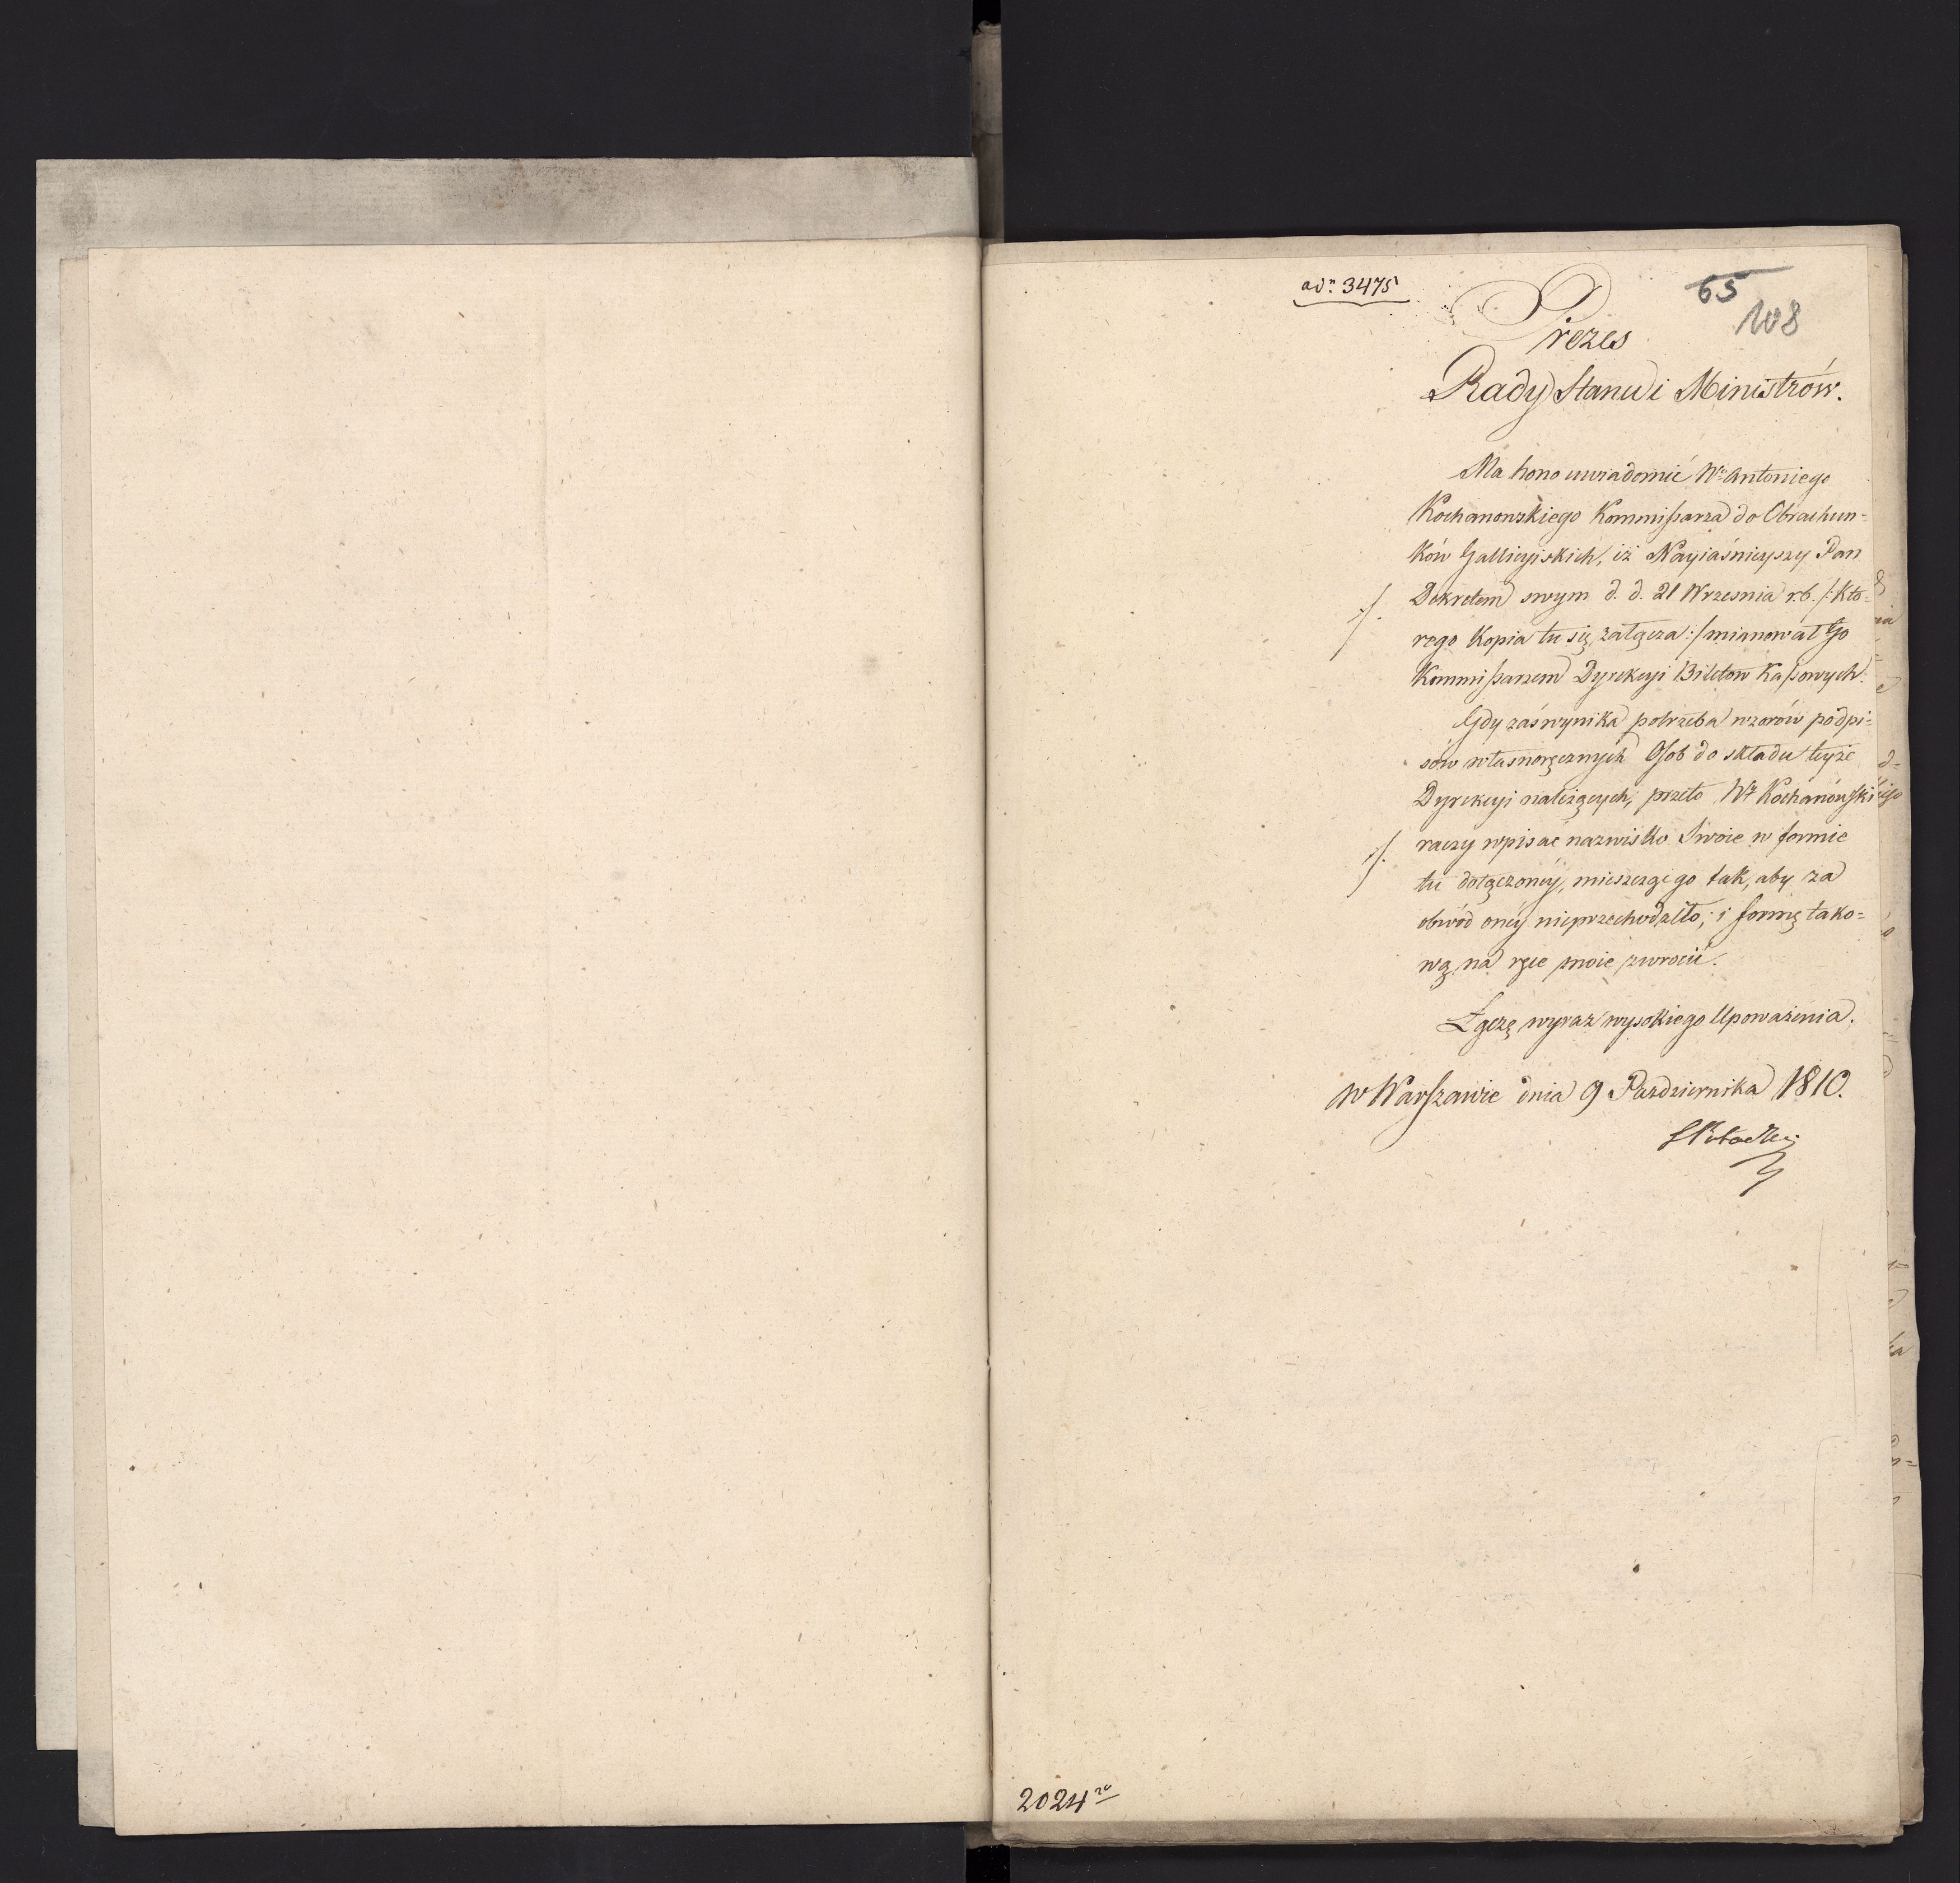 ad n. 3475
65
108
Prezes
Rady Stanu i Ministrów.
Ma honor uwiadomić Wo Antoniego
Kochanowskiego Kommissarza do Obrachun=
ków Gallicyiskich, iż Nayiaśnieyszy Pan
./. Dekretem swym d. d. 21 Wrzesnia r. b. /: Któ=
rego Kopia tu się załącza :/ mianował Go
Kommissarzem Dyrekcyi Biletow Kassowych.
Gdy zaś wynika potrzeba wzorów podpi=
sów własnoręcznych Osob do składu teyże
Dyrekcyi należących, przeto Wy Kochanowski
./. raczy wpisac nazwisko Swoie w formie
tu dołączoney, mieszcząc go tak, aby za
obwód oney nieprzechodziło; i formę tako=
wą na ręce moie zwrocić.
Łączę wyraz wysokiego Upoważenia.
w Warszawie dnia 9 Pazdziernika 1810.
SPotocki
2024